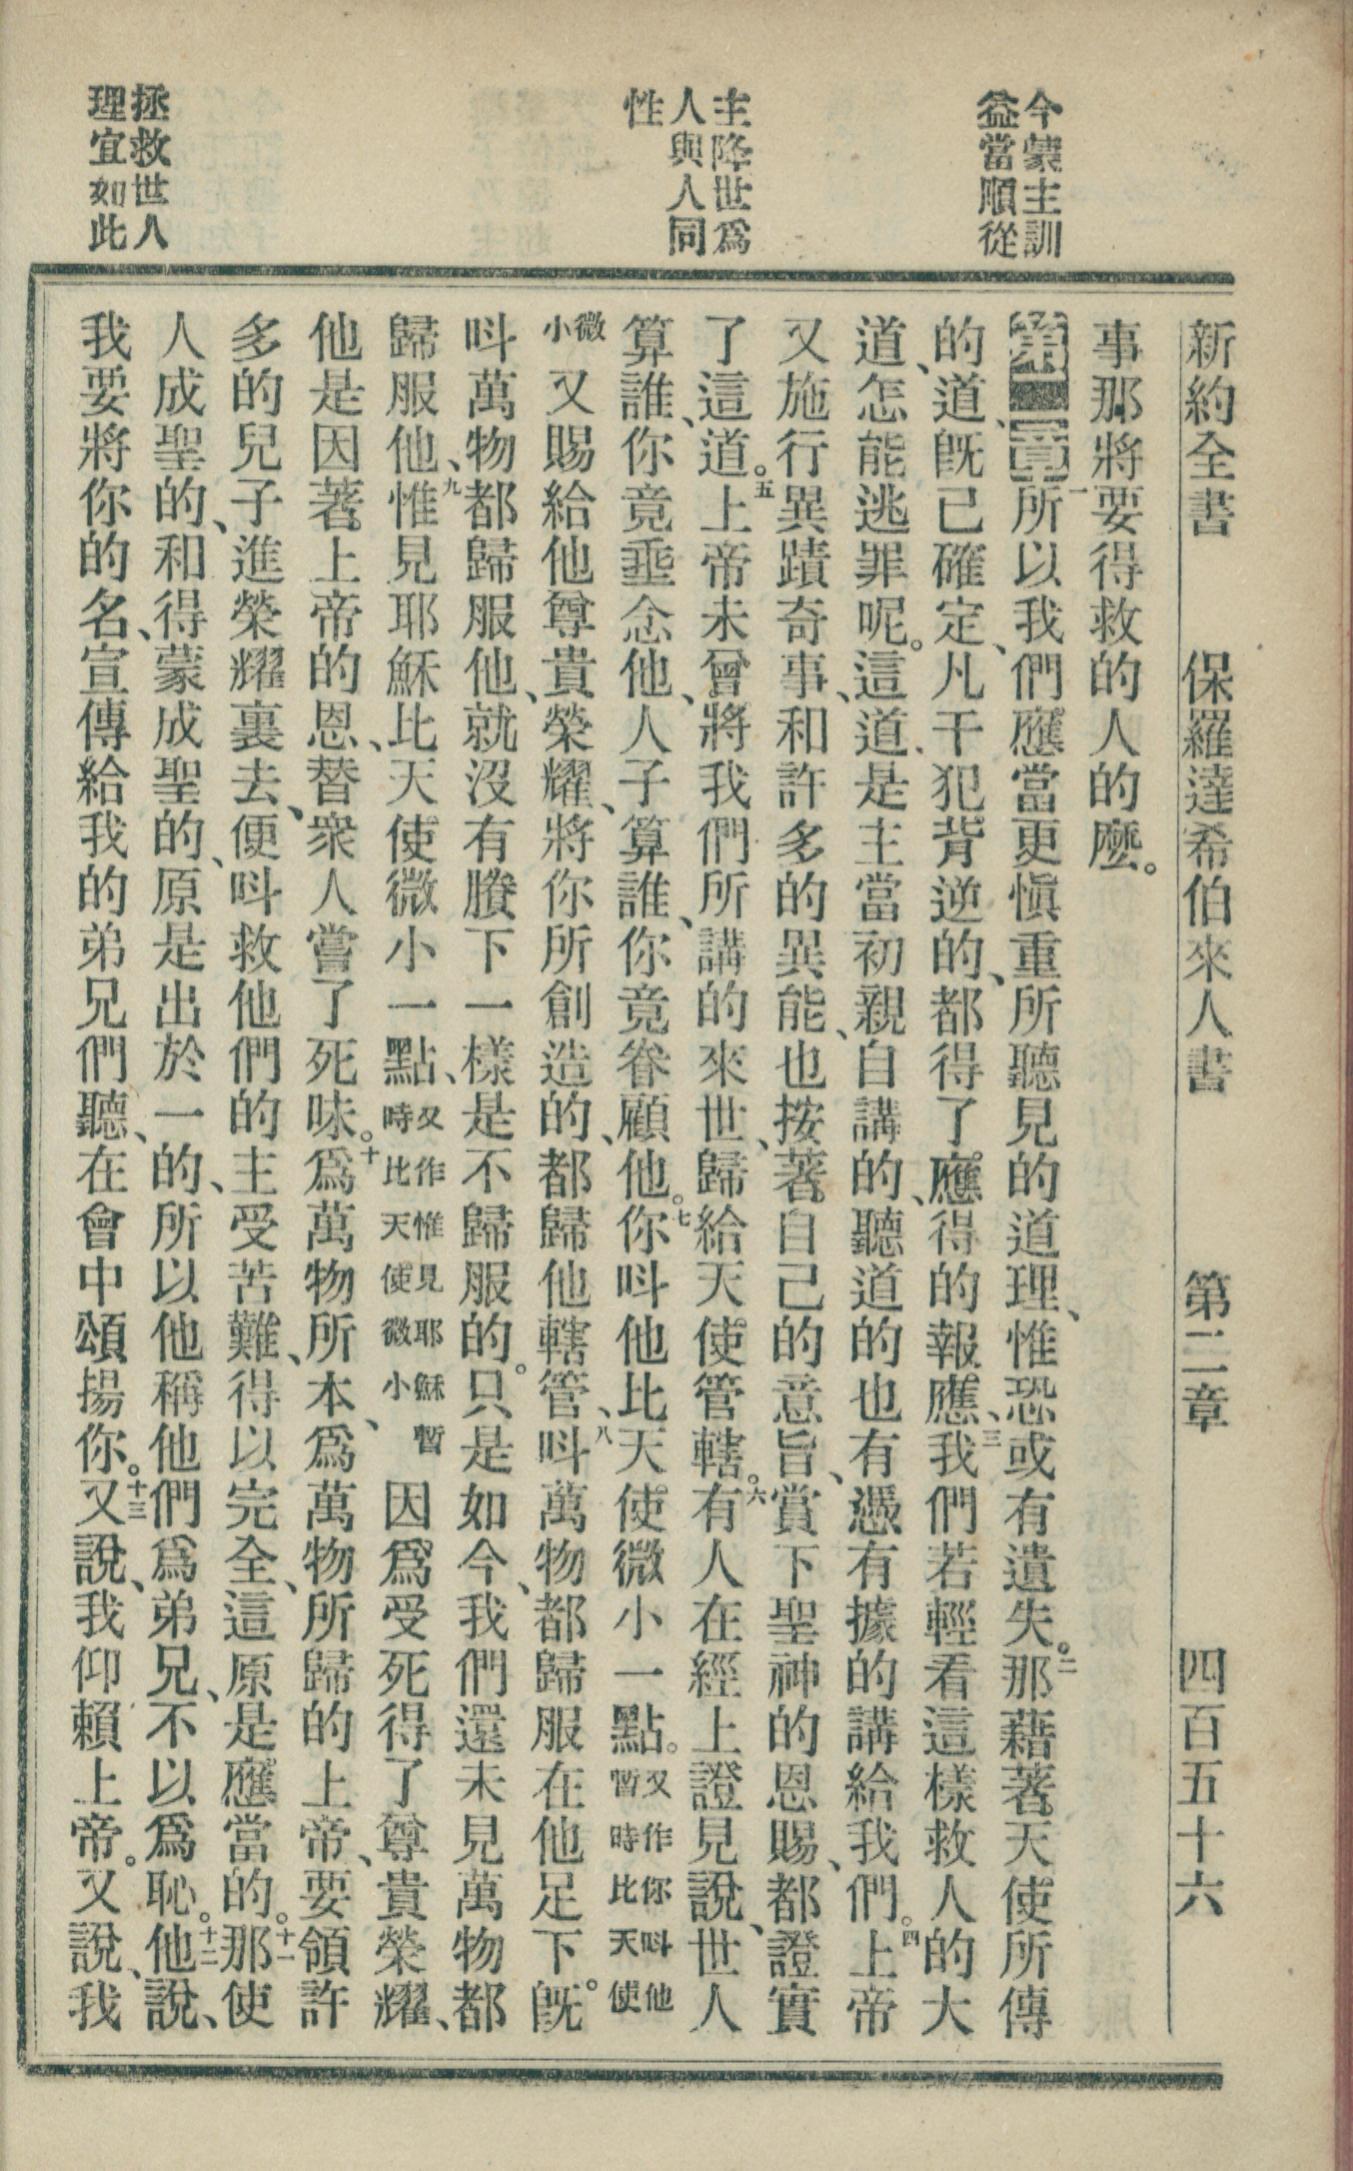 今蒙主訓
益當順從
主降世爲
人與人同
性
拯救世人
理宜如此
新約全書 保羅達希伯來人書 第二章 四百五十六
事那將要得救的人的麽。
第二章一所以我們應當更愼重所聽見的道理、惟恐或有遺失。二那藉著天使所傳
的道、旣已確定、凡干犯背逆的、都得了應得的報應、三我們若輕看這樣救人的大
道、怎能逃罪呢。這道、是主當初親自講的、聽道的也有憑有據的講給我們。四上帝
又施行異蹟奇事、和許多的異能、也按著自己的意旨、賞下聖神的恩賜、都證實
了這道。五上帝未曾將我們所講的來世、歸給天使管轄。六有人在經上證見說、世人
算誰、你竟垂念他、人子算誰、你竟眷顧他。七你呌他比天使微小一點。又作你呌他暫時比天使
微小又賜給他尊貴榮耀、將你所創造的、都歸他轄管、八呌萬物都歸服在他足下。旣
呌萬物都歸服他、就沒有賸下一樣是不歸服的。只是如今、我們還未見萬物都
歸服他、九惟見耶穌比天使微小一點、又作惟見耶穌暫時比天使微小因爲受死得了尊貴榮耀、
他是因著上帝的恩、替衆人嘗了死味。十爲萬物所本、爲萬物所歸的上帝、要領許
多的兒子、進榮耀裏去、便呌救他們的主受苦難、得以完全、這原是應當的。十一那使
人成聖的、和得蒙成聖的、原是出於一的、所以他稱他們爲弟兄、不以爲恥。十二他說、
我要將你的名、宣傳給我的弟兄們聽、在會中頌揚你。十三又說、我仰賴上帝。又說、我